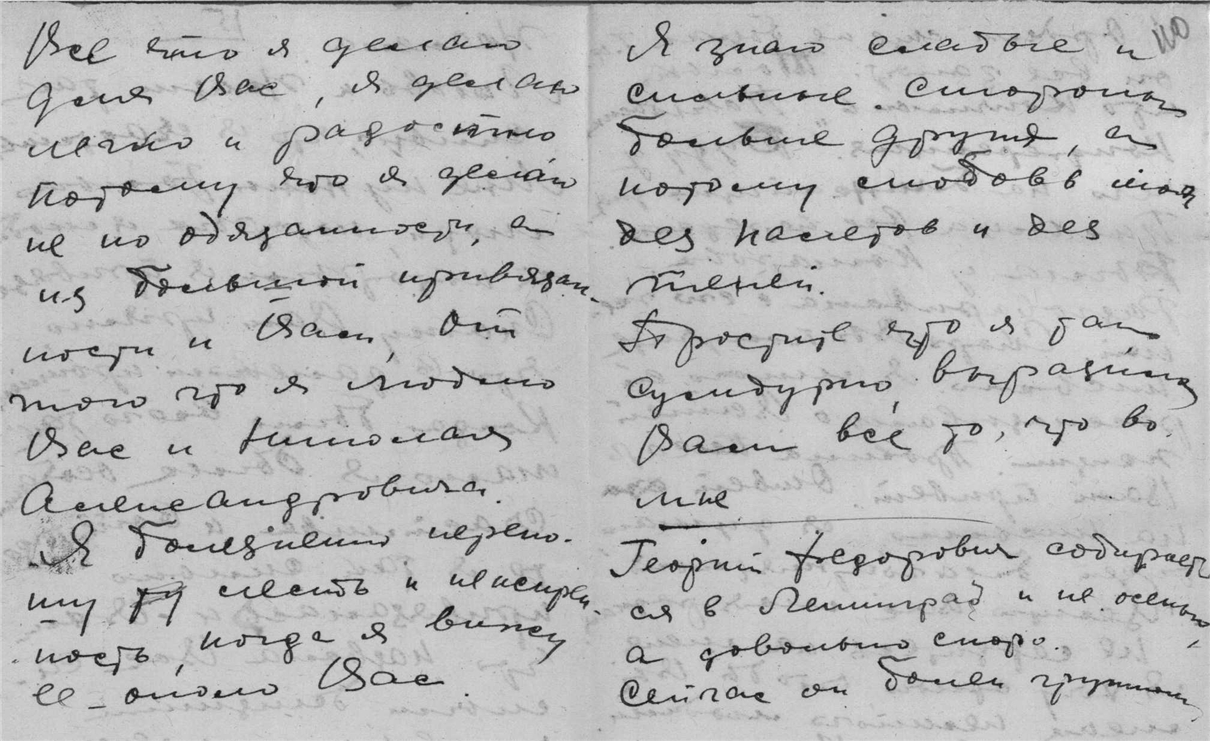 Все что я делаю
для Вас, я делаю
легко и радостно
потому что я делаю
не по обязанности, а
из большой привязан-
ности к Вам, от
того что я люблю
Вас и Николая
Александровича.
Я болезненно перено-
шу лесть и неискрен-
ность, когда я вижу
ее – около Вас.
110
Я знаю слабые и
сильные стороны
больше других, а
потому любовь моя
без налетов и без
теней.
Простите что я так
сумбурно, выразила
Вам всё то, что во
мне
Георгий Федорович собирает-
ся в Ленинград и не осенью,
а довольно скоро.
Сейчас он болен гриппом,